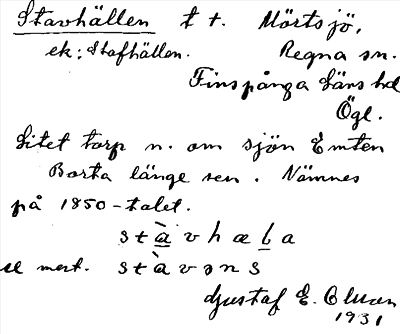 Stavhällen t t. Mörtsjö,
ek: Stafhällen. Regna sn.
Finspånga läns hd
Ögl.
Litet torp n. om sjön Emten
Borta länge sen. Nämnes
på 1850-talet.
stàvhæla
mest. stàvəns
Gustaf E. Olsson
1931